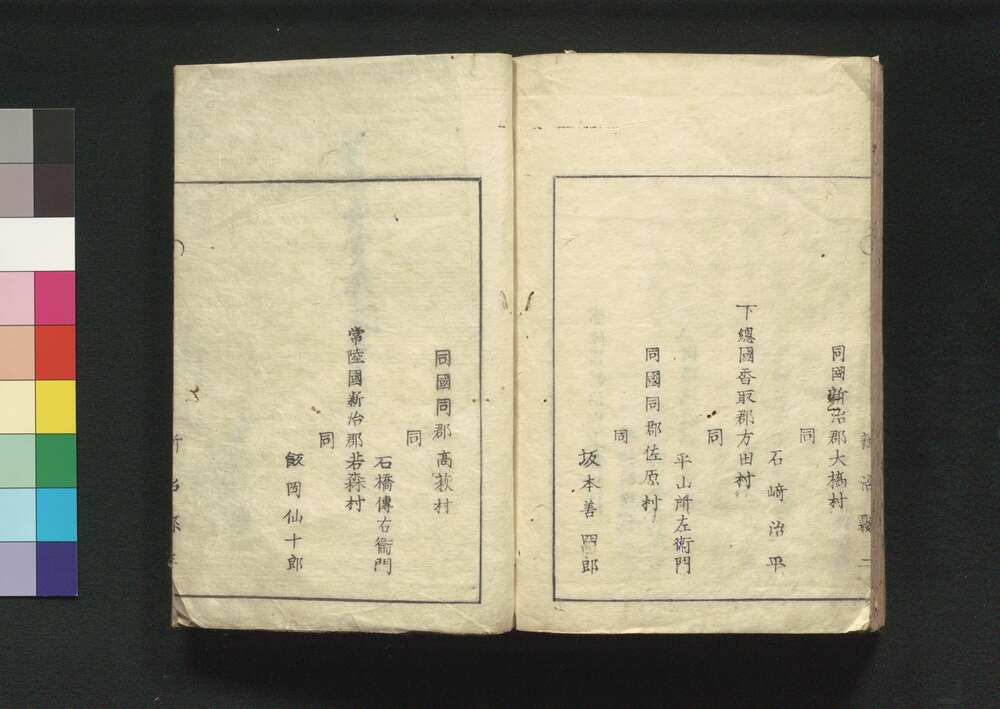 同國新治郡大橋村
同
石﨑治平
下總國香取郡方田村
同
平山所左衞門
同國同郡佐原村
同
坂本善四郎
同國同郡高萩村
同
石橋傳右衞門
常陸國新治郡若森村
同
飯岡仙十郎